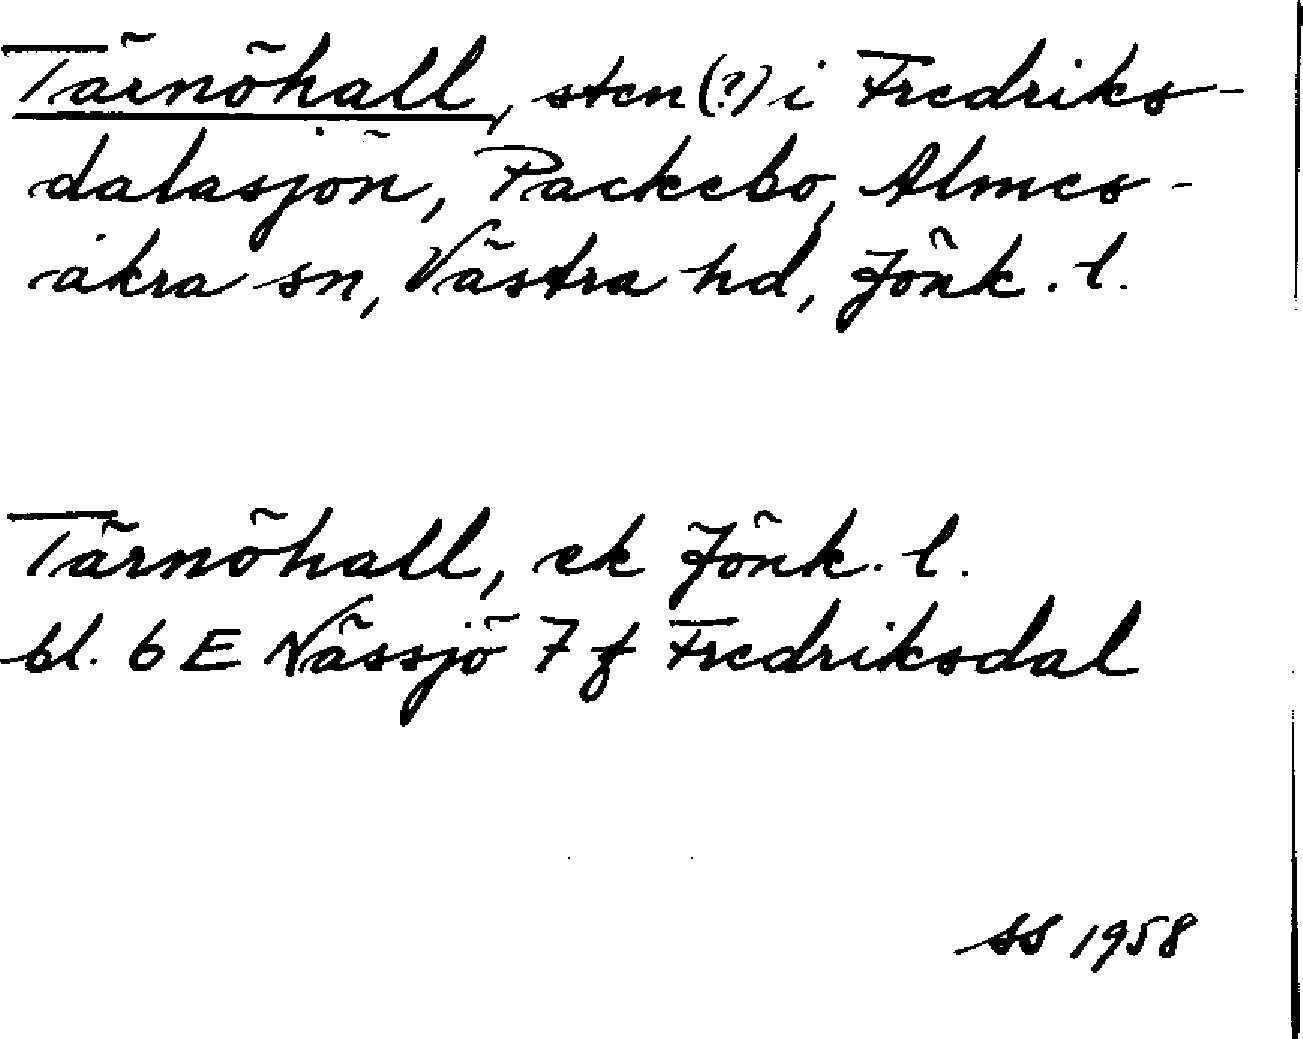 Tärnöhall, sten (?) i Fredriks-
dalasjön, Packebo, Almes-
åkra sn, Västra hd, Jönk. l.
Tärnöhall, ek Jönk. l.
bl. 6 E Nässjö 7 f Fredriksdal
SS 1958